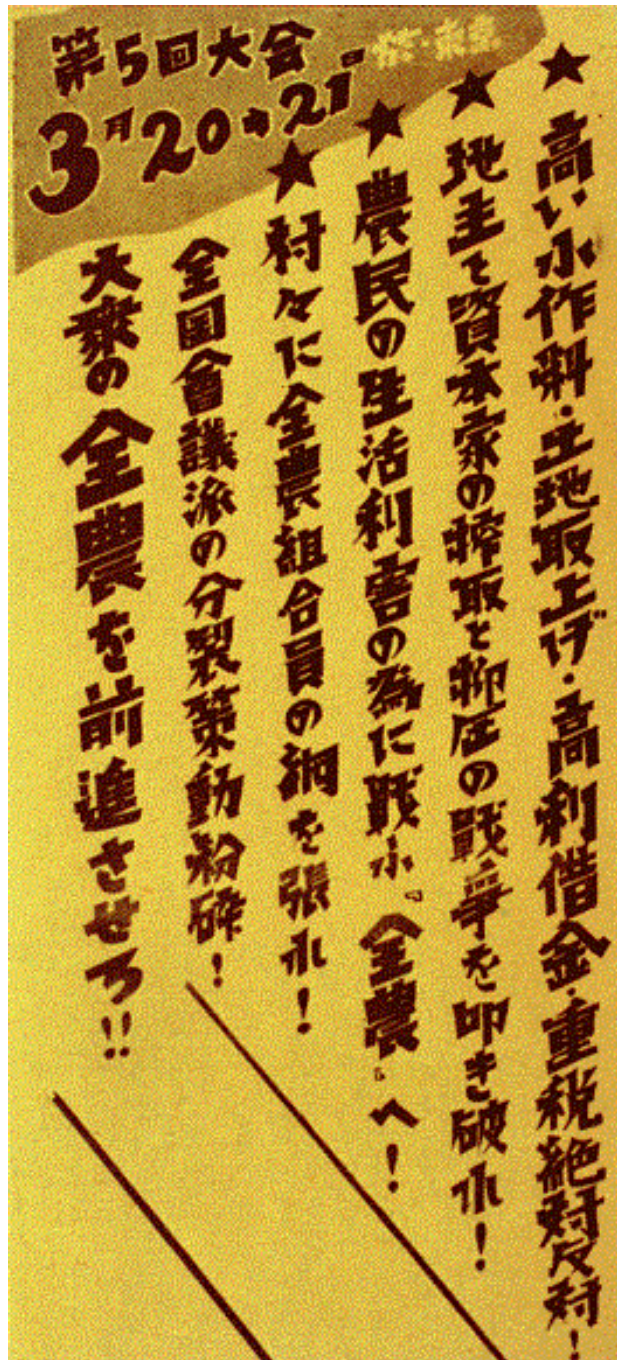 第5回大会
3月20・21日
於・東京
★高い小作料・土地取上げ・高利借金・重税絶対反対!
★地主と資本家の搾取と抑圧の戰爭を叩き破れ!
★農民の生活利害の為に戦ふ『全農』へ!
★村々に全農組合員の網を張れ!
全国會議派の分裂策動粉砕!
大衆の全農を前進させろ!!